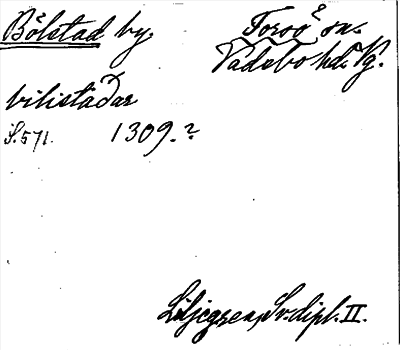 Bölstad by, Forso? sn.
Vadsbo hd. Vg.
bilistadar
S. 571. 1309.?
Liljegren, Sv. dipl. II.